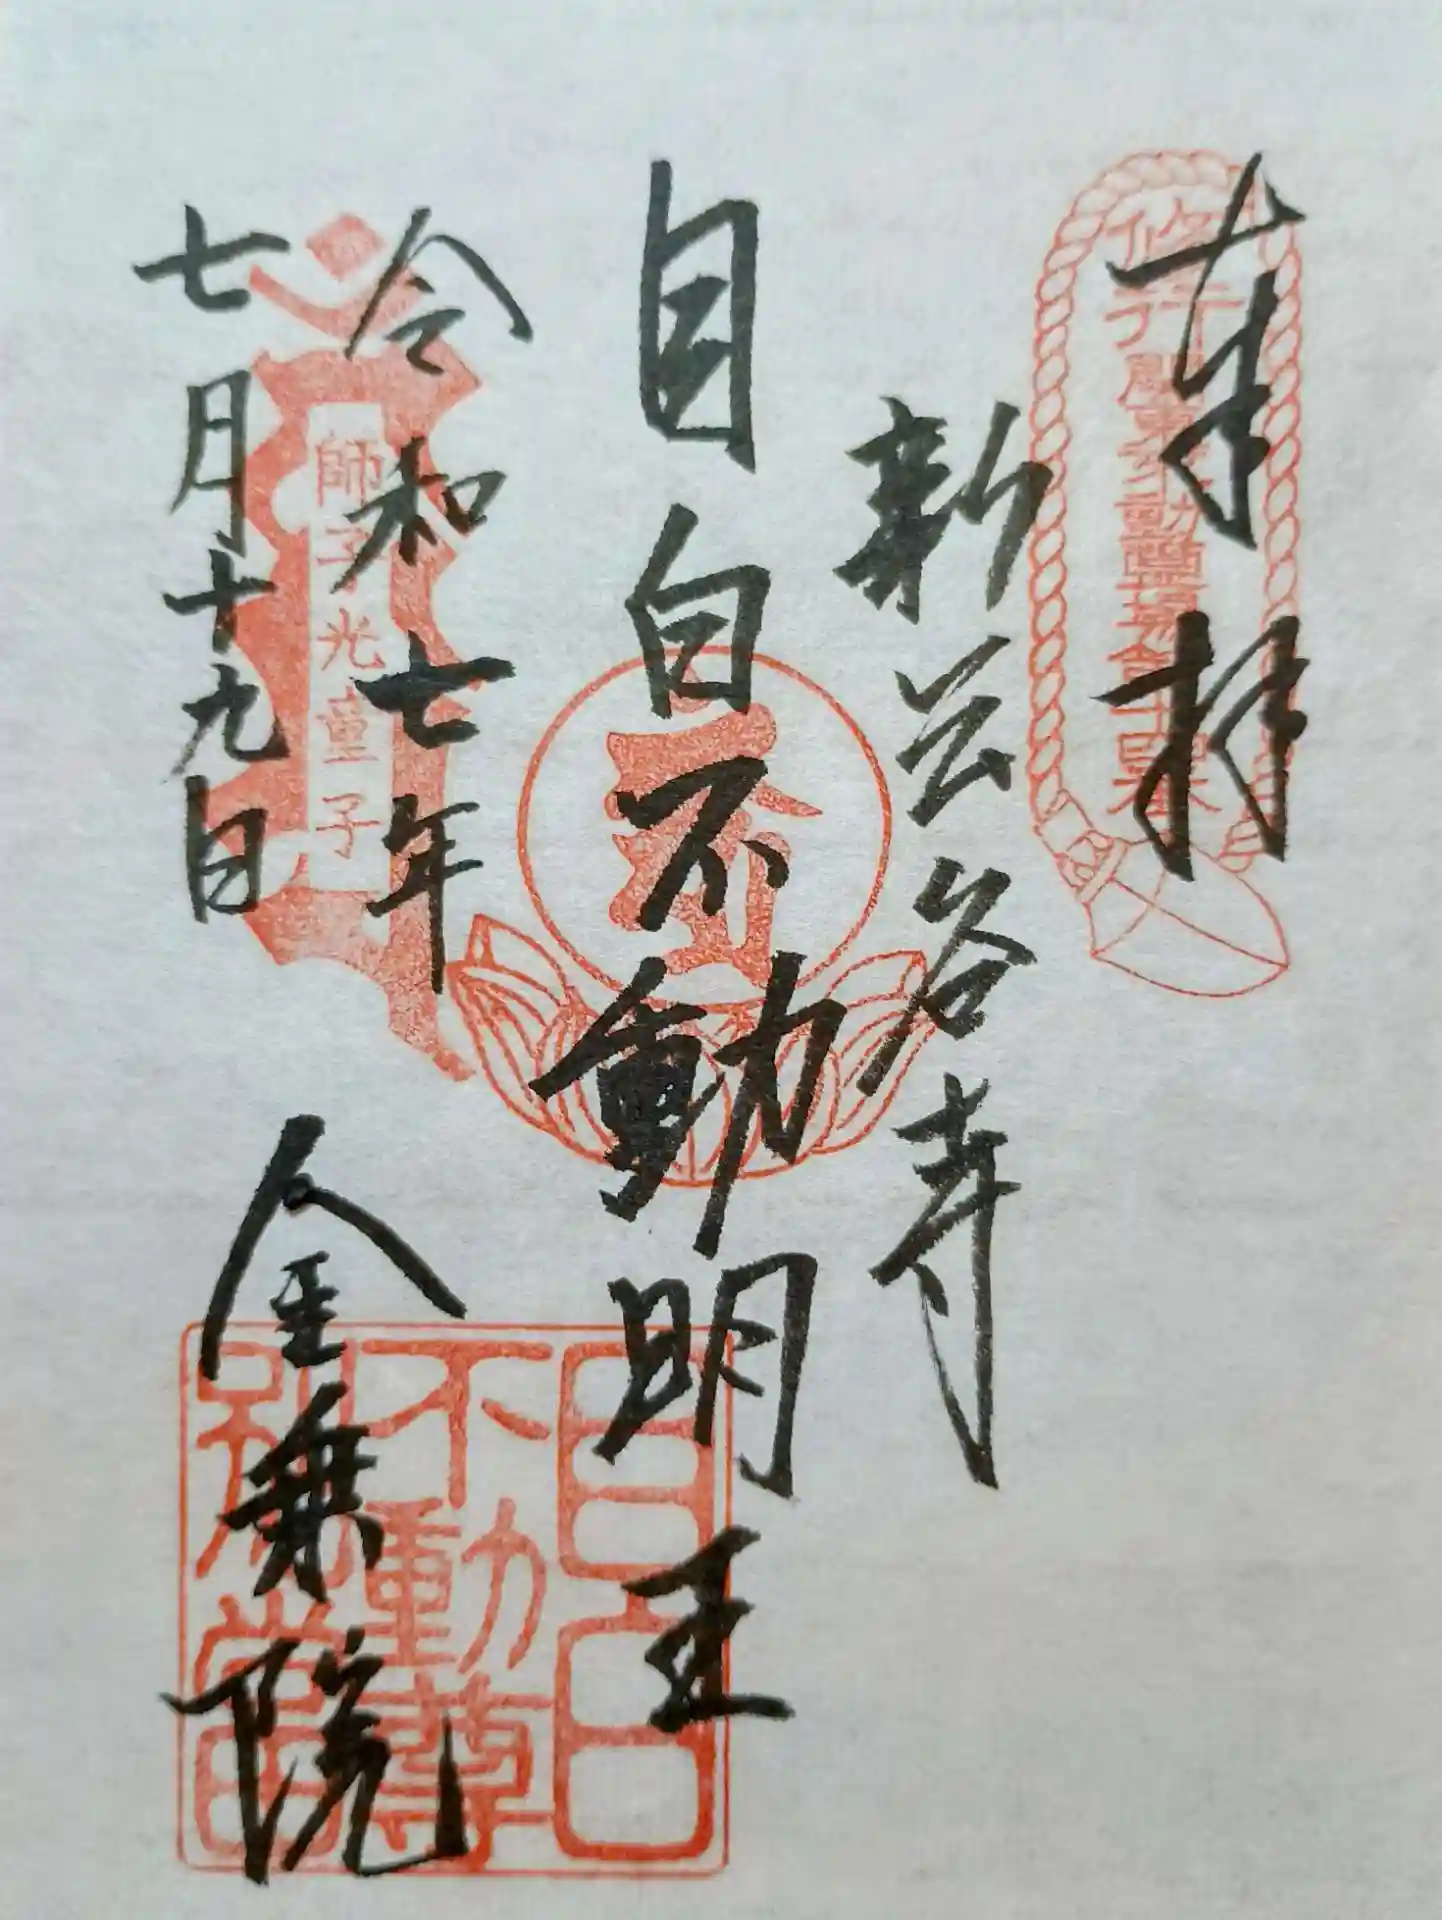 奉拝
修行
新長谷寺
目白不動明王
令和七年
七月十九日
師子光童子
金乗院
目白
不動尊
別當